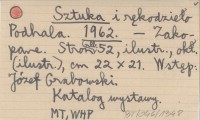 Sztuka i rękodzieło
Podhala. 1962. — Zako-
pane. Stron 52, ilustr., okł.
(ilustr.), cm 22 × 21. Wstęp:
Józef Grabowski.
Katalog wystawy.
MT, WHP